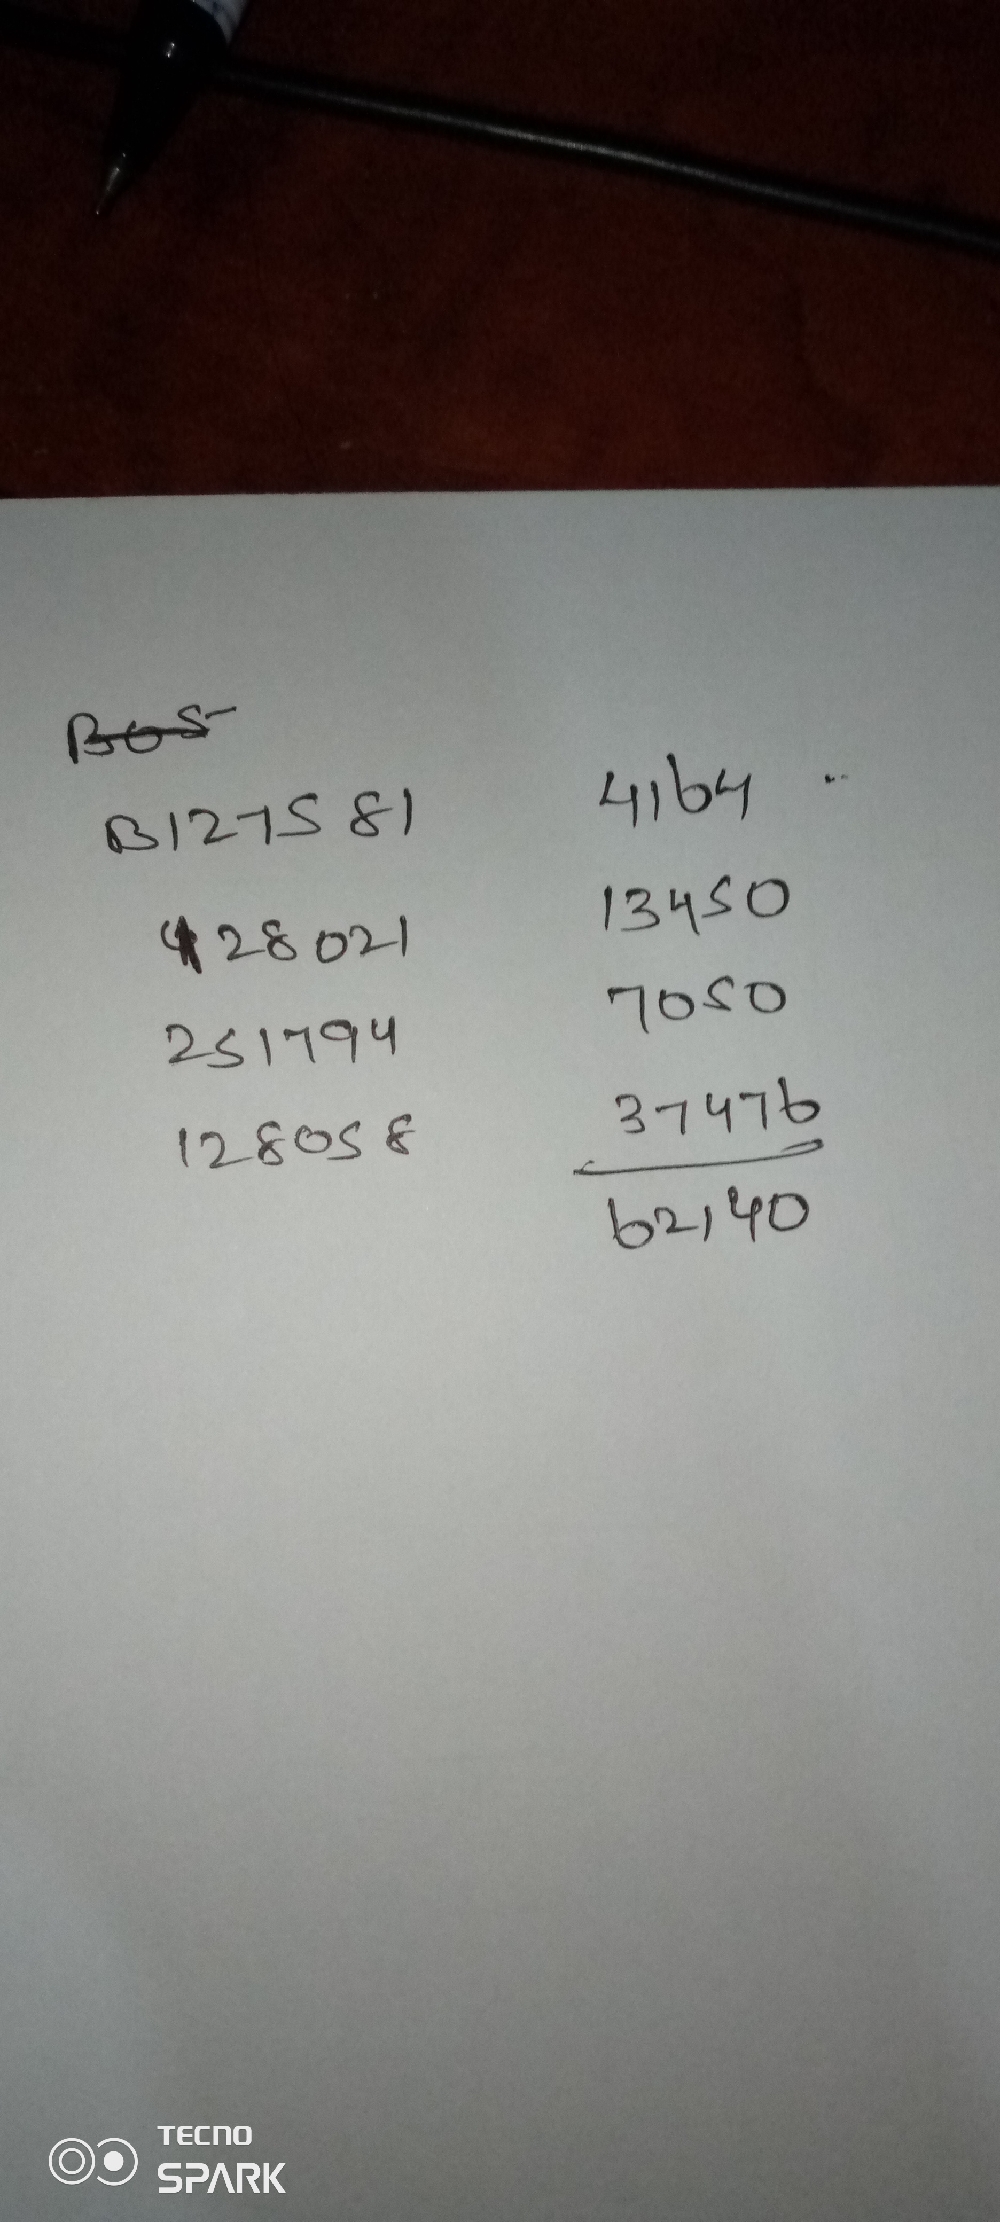 B127581 4164
28021 13450
251794 7050
128058 37476
62140
TECNO
SPARK